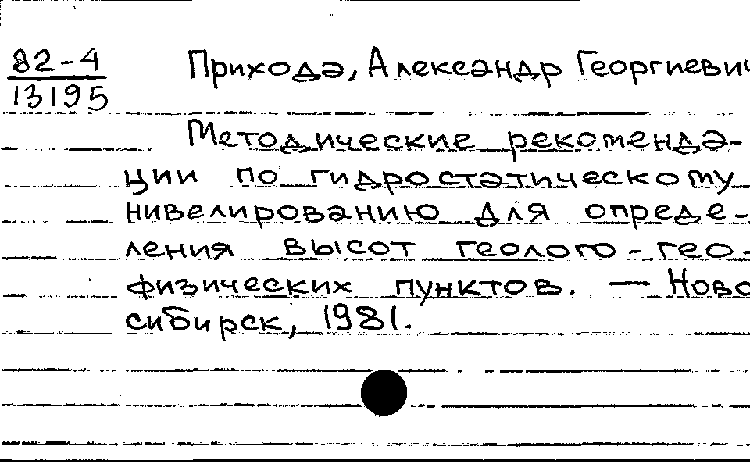 82-4 Приходэ, Александр Георгиевич
13195
Методические рекомендэ-
ции по гидростэтическому
нивелировэнию для опреде-
ления высот геолого-гео-
физических пунктов. — Ново
сибирск, 1981.